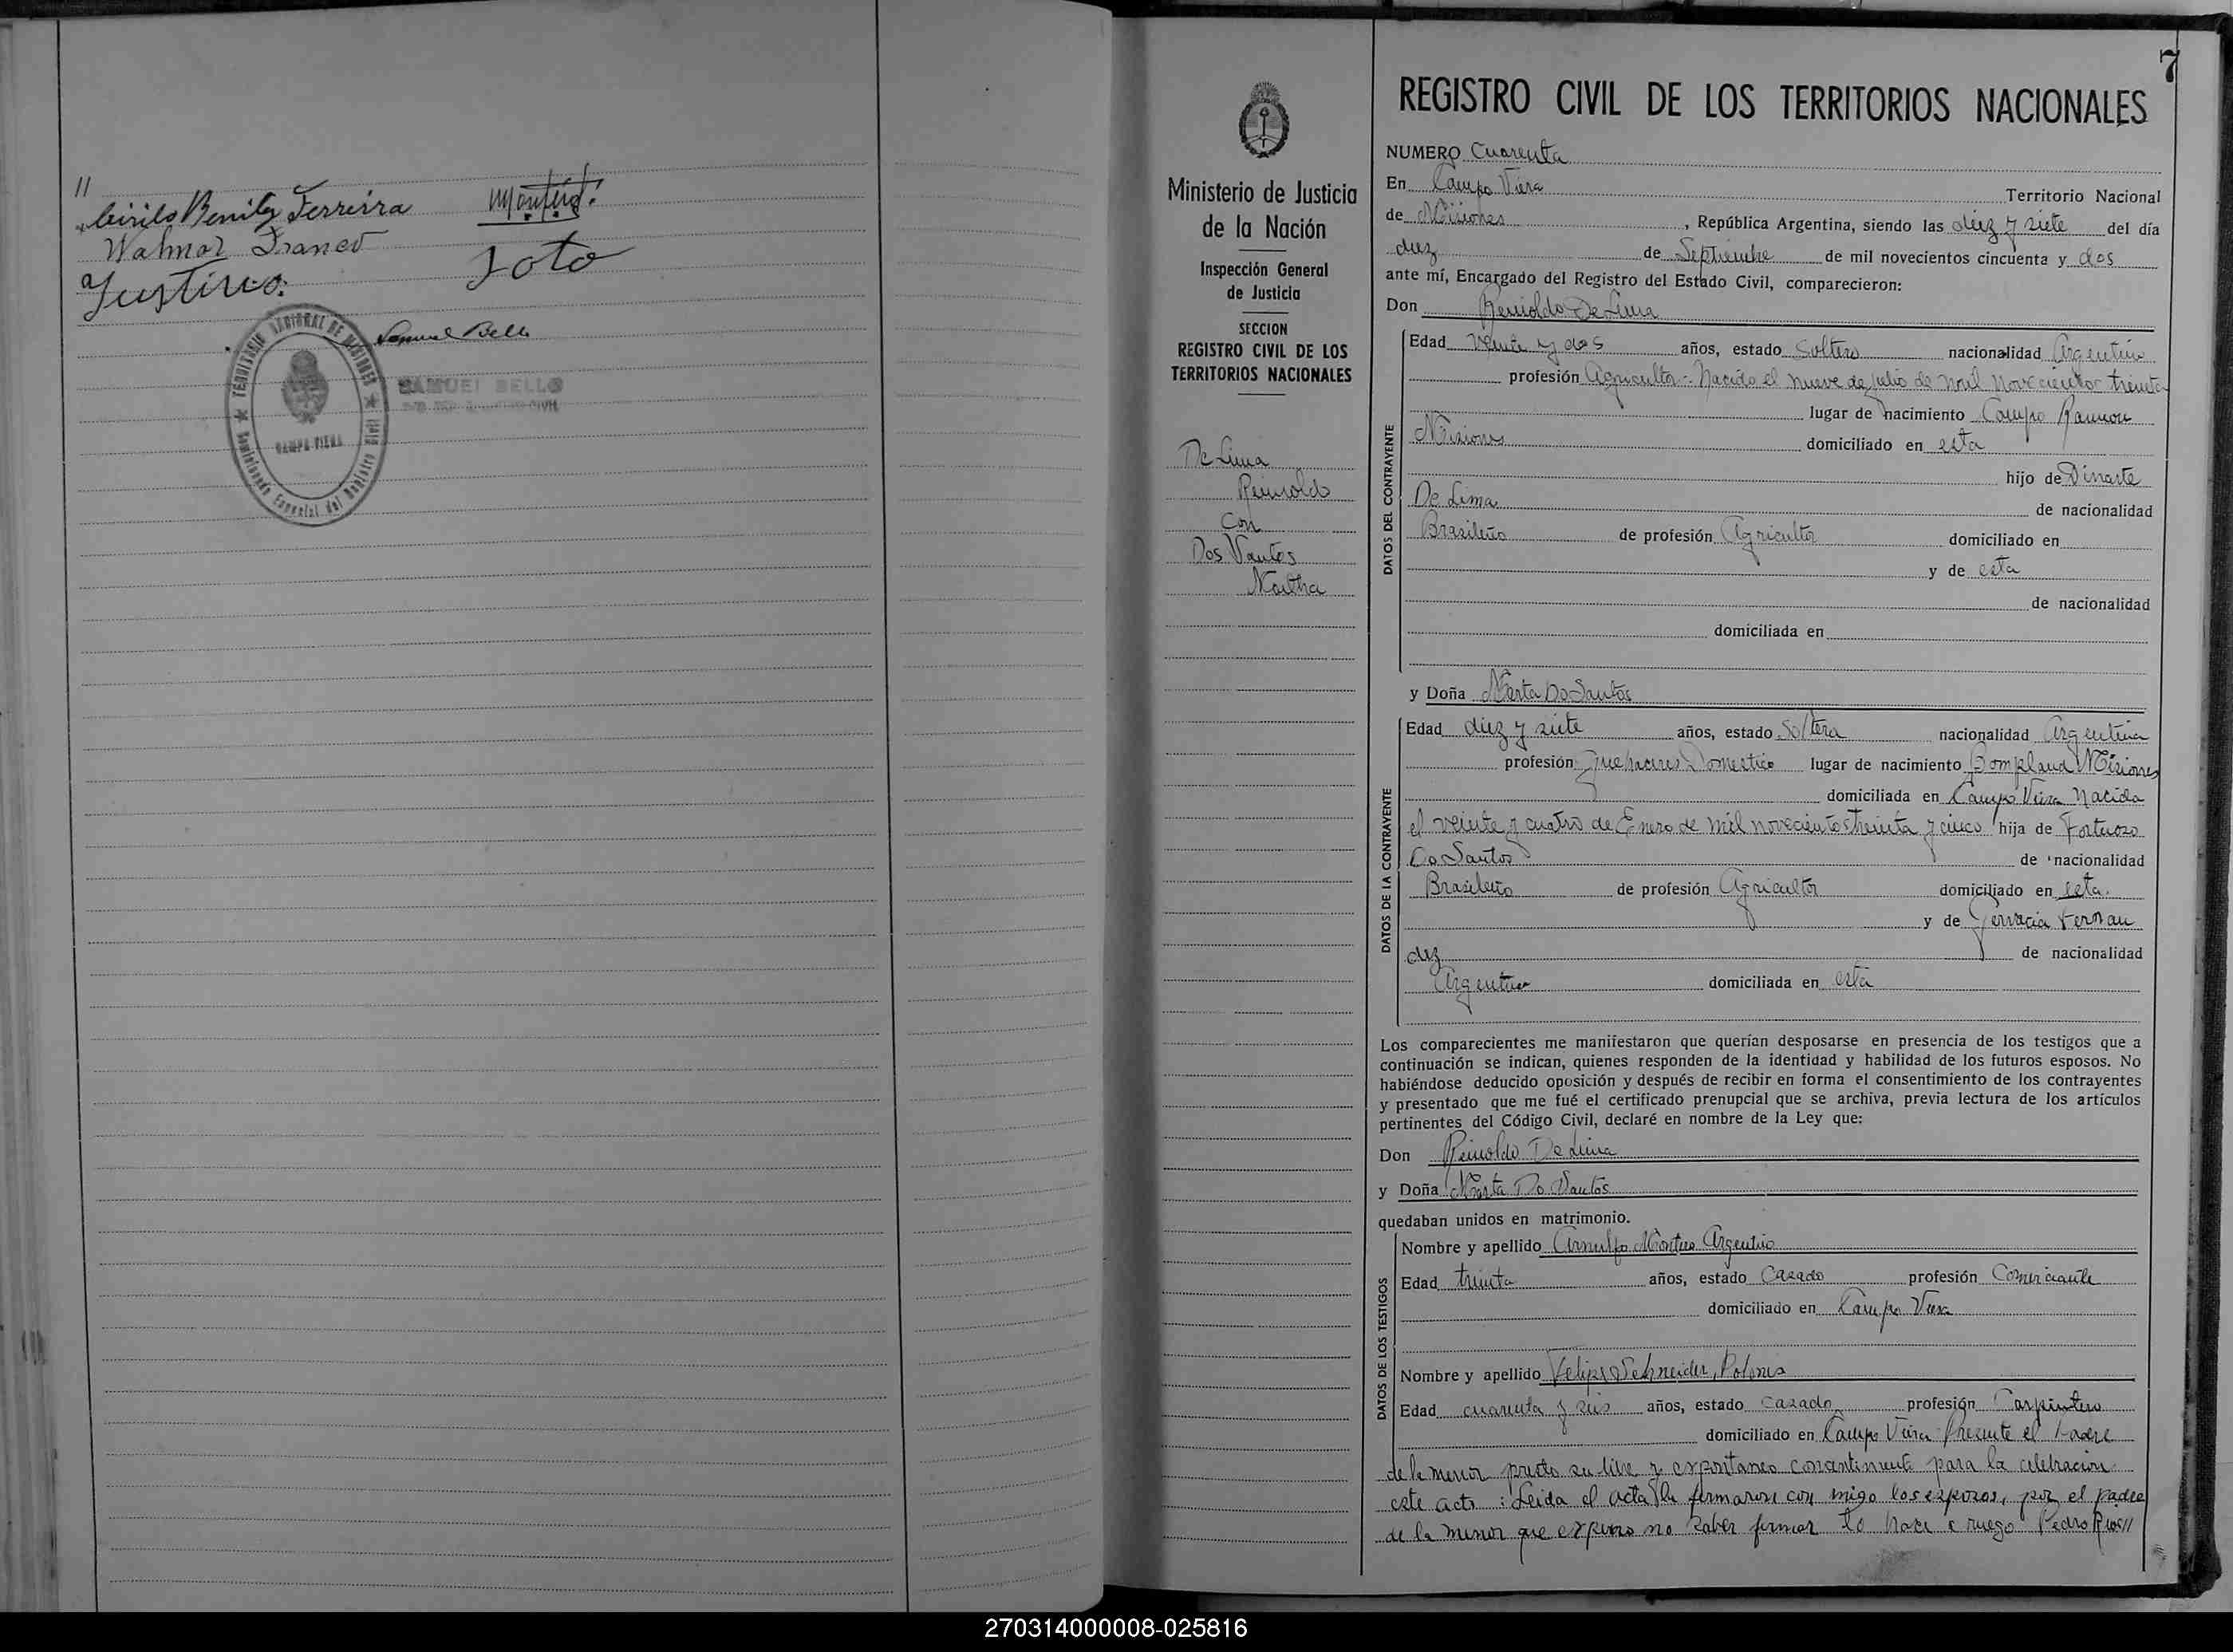 //
Cirilo Benitez Ferreira
Walmor Franco
Justino Soto
Samuel Bello
TERRITORIO NACIONAL DE MISIONES
CAMPO VIERA
SAMUEL BELLO
7
REGISTRO CIVIL DE LOS TERRITORIOS NACIONALES
Ministerio de Justicia
de la Nación
Inspección General
de Justicia
SECCION
REGISTRO CIVIL DE LOS
TERRITORIOS NACIONALES
De Lima
Reinoldo
Con
Dos Santos
Martha
NUMERO Cuarenta
En Campo Viera Territorio Nacional
de Misiones, República Argentina, siendo las diez y siete del día
diez de Septiembre de mil novecientos cincuenta y dos
ante mí, Encargado del Registro del Estado Civil, comparecieron:
Don Reinoldo De Lima
DATOS DEL CONTRAYENTE
Edad veinte y dos años, estado Soltero nacionalidad Argentino
profesión Agricultor - Nacido el nueve de Julio de mil novecientos treinta
lugar de nacimiento Campo Ramon
Misiones domiciliado en esta
hijo de Dinarte
De Lima de nacionalidad
Brasileño de profesión Agricultor domiciliado en
y de esta
de nacionalidad
domiciliada en
y Doña Marta Do Santos
DATOS DE LA CONTRAYENTE
Edad diez y siete años, estado Soltera nacionalidad Argentina
profesión Quehaceres Domestico lugar de nacimiento Bompland Misiones
domiciliada en Campo Viera Nacida
el veinte y cuatro de Enero de mil novecientos treinta y cinco hija de Fortunozo
Do Santos de nacionalidad
Brasileño de profesión Agricultor domiciliado en esta.
y de Gervacia Fernan
dez de nacionalidad
Argentina domiciliada en esta
Los comparecientes me manifestaron que querían desposarse en presencia de los testigos que a
continuación se indican, quienes responden de la identidad y habilidad de los futuros esposos. No
habiéndose deducido oposición y después de recibir en forma el consentimiento de los contrayentes
y presentado que me fué el certificado prenupcial que se archiva, previa lectura de los artículos
pertinentes del Código Civil, declaré en nombre de la Ley que:
Don Reinoldo De Lima
y Doña Marta Do Santos
quedaban unidos en matrimonio.
DATOS DE LOS TESTIGOS
Nombre y apellido Arnulfo Montero Argentino
Edad treinta años, estado Casado profesión Comerciante
domiciliado en Campo Viera
Nombre y apellido Felipe Schneider, Polones
Edad cuarenta y seis años, estado casado profesión Carpintero
domiciliado en Campo Viera Presente el Padre
de la menor presto su libre y espontaneo consentimiento para la celebracion
este acto : Leida el acta la firmaron con migo los esposos, por el padre
de la menor que expreso no saber firmar lo hace a ruego Pedro Rios//
270314000008-025816